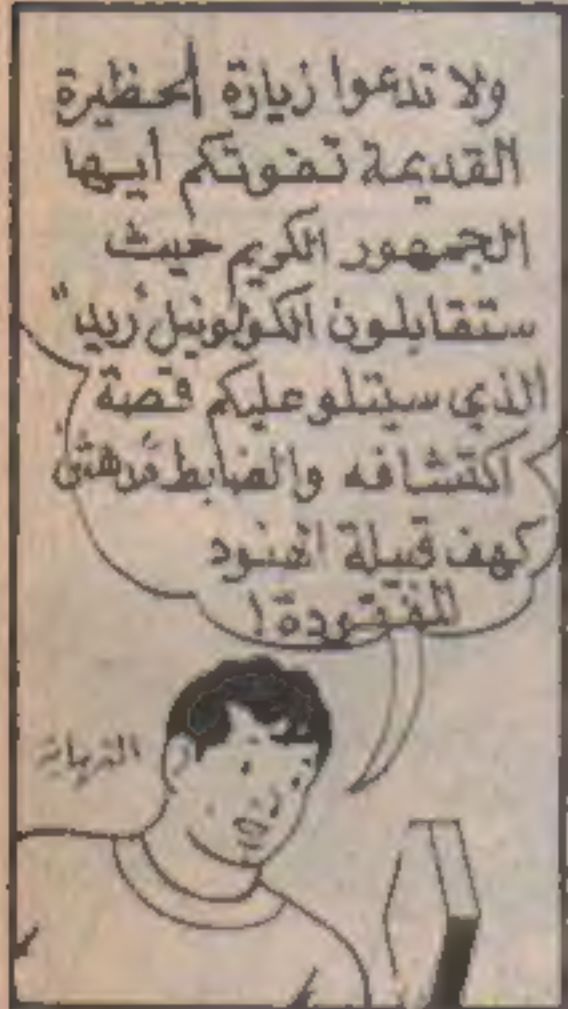 ولا تدعوا زيارة الحظيرة
القديمة تفوتكم أيها
الجمهور الكريم حيث
ستقابلون الكولونيل "ريد"
الذي سيتلو عليكم قصة
اكتشافه والضابط
كهف قبيلة الهنود
المفقودة!